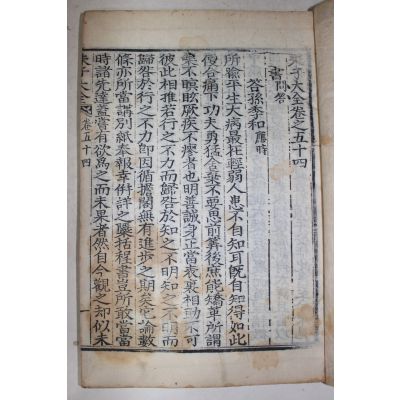 朱子大全卷之五十四
書 問答
答孫季和 應時
所踰平生大病最在輕弱人患不自知耳既自知得如此
便合痛下功夫勇猛舍棄不要思前筭後庶能矯革所謂
藥不瞑眩厥疾不瘳者也明善誠身正當表裏相助不可
彼此相推若行之不力而歸咎於知之不明知之不明而
歸咎於行之不力即因循擔閣無有進步之期矣它論數
條亦所當講別紙奉報幸併詳之櫽括程書豈所敢當當
時諸先達蓋嘗有欲爲之而未果者然自今觀之却似未
朱子大全 卷五十四